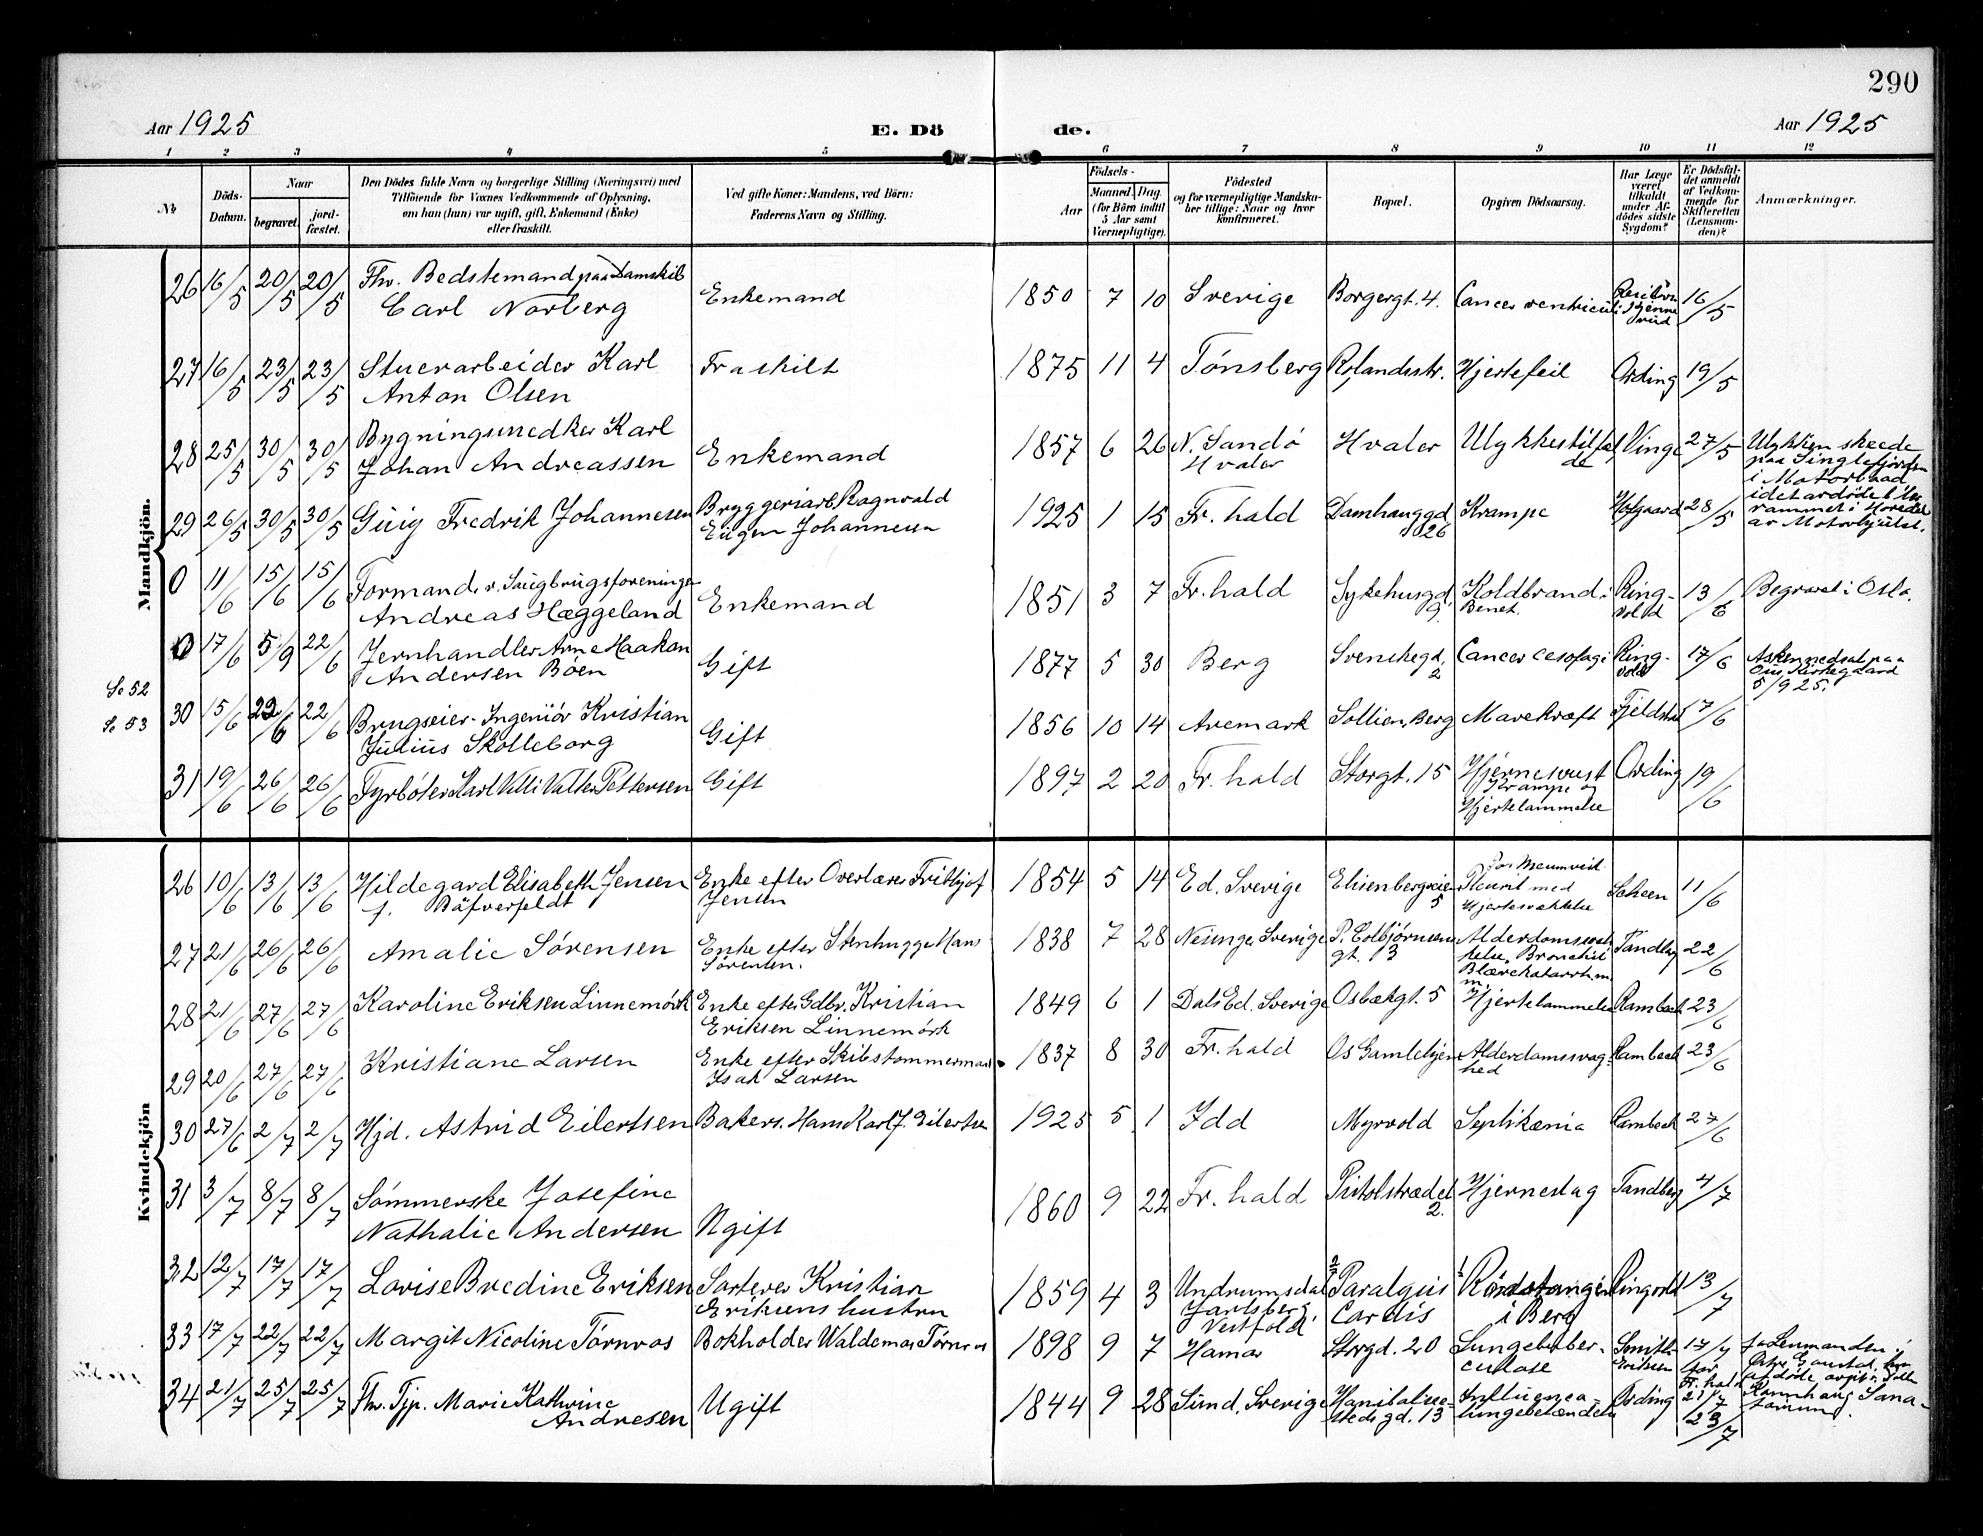 290
Aar 1925
E. Dö
de.
Aar 1925
1 2 3 4 5 6 7 8 9 10 11 12
No.
Döds-Datum.
Naar
begravet.
jord-fæstet.
Den Dödes fulde Navn og borgerlige Stilling (Næringsvei) med
Tilföiende for Voxnes Vedkommende af Oplysning,
om han (hun) var ugift, gift, Enkemand (Enke)
eller fraskilt.
Ved gifte Koner: Mandens, ved Börn:
Faderens Navn og Stilling.
Födsels-
Aar
Maaned. Dag.
(for Börn indtil
5 Aar samt
Værnepligtige).
Födested
og for værnepligtige Mandska-
ber tillige: Naar og hvor
konfirmeret.
Bopæl.
Opgiven Dödsaarsag.
Har Læge
været
tilkaldt
under Af-
dödes sidste
Sygdom?
Er Dödsfal-
det anmeldt
af Vedkom-
mende for
Skifteretten
(Lensman-
den)?
Anmærkninger.
Mandkjön.
26 16/5 20/5 20/5 Fhv. Bedstemand paa Damskib
Carl Norberg Enkemand 1850 7 10 Sverige Borgergt. 4. Cancer ventriculi 16/5
27 16/5 23/5 23/5 Stuerarbeider Karl
Anton Olsen Fraskilt 1875 11 4 Tønsberg Rolandsstr. Hjertefeil Ording 19/5
28 25/5 30/5 30/5 Bygningssnedker Karl
Johan Andreassen Enkemand 1857 6 26 N. Sandö
Hvaler Hvaler Ulykkestilfæl
de Vinge 27/5 Ulykken skeede
paa Singlefjorden
i Motorbaad
idet avdøde blev
rammet i Hovedet
av Motorhjulet.
29 26/5 30/5 30/5 Guiy Fredrik Johannesen Bryggeriarb. Ragnvald
Eugen Johannesen 1925 1 15 Fr. hald Damhauggd
1026 Krampe Hofgaard 28/5
0 11/6 15/6 15/6 Formand v. Saugbrugsforeningen
Andreas Hæggeland Enkemand 1851 3 7 Fr. hald Sykehusgd.
9. Koldbrand i
Benet. Ring-
vold 13/6 Begravet i Oslo.
0 17/6 5/9 22/6 Jernhandler Arne Haakon
Andersen Böen Gift 1877 5 30 Berg Svenskegd.
2 Cancer oesofagi Ring-
vold 17/6 Asken nedsat paa
Os Kirkegaard
5/9 25.
So 52
So 53
30 15/6 22/6 22/6 Brugseier-Ingeniör Kristian
Julius Skolleborg Gift 1856 10 14 Aremark Sollien, Berg Mavekræft Fjeldstad 17/6
31 19/6 26/6 26/6 Fyrbøter Karl Villi Valter Pettersen Gift 1897 2 20 Fr. hald Storgt. 15 Hjernesvust
Krampe og
Hjertelammelse Ording 19/6
Kvindekjön
26 10/6 13/6 13/6 Hildegard Elisabeth Jensen
f. Bäfverfeldt Enke efter Overlærer Frithjof
Jensen 1854 5 14 Ed. Sverige Elisenbergveien
5 Pleurit med
Hjertesvækkelse Scheen 11/6
27 21/6 26/6 26/6 Amalie Sørensen Enke efter Stenhugge Hans
Sörensen. 1838 7 28 Sverige P. Colbjørnsens
gt. 13 Alderdomssvæk
kelse, Bronchit
Blærekatarrh m
m. Tandberg 22/6
28 21/6 27/6 27/6 Karoline Eriksen Linnemörk Enke efter Gdbr. Kristian
Eriksen Linnemörk 1849 6 1 Dals Ed. Sverige Osbækgt. 5 Hjertelammelse Rambech 23/6
29 20/6 27/6 27/6 Kristiane Larsen Enke efter Skibstømmermand
Isak Larsen 1837 8 30 Fr. hald Os Gamlehjem Alderdomssvag-
hed Rambech 23/6
30 27/6 2/7 2/7 Hjd. Astrid Eilertsen Bakers. Hans Karl J. Eilertsen 1925 5 1 Idd Myrvold Septikæmia Rambech 27/6
31 3/7 8/7 8/7 Sömmerske Josefine
Nathalie Andersen Ugift 1860 9 22 Fr. hald Pistolstrædet
2. Hjerneslag Tandberg 4/7
32 12/7 17/7 17/7 Lovise Bredine Eriksen Sorterer Kristian
Eriksens hustru 1859 4 3 Undrumsdal
Jarlsberg
Vestfold Paralysis
Cordis Rödstangen
i Berg Ringvold 13/7
33 17/7 22/7 22/7 Margit Nicoline Törnros Bokholder Waldemar Törnros 1898 9 7 Hamar Storgd. 20 Lungetuber-
culose Smith
Eriksen 17/7 for
Fr. hald
21/7 Lensmanden i
Gausdal, hun
afdöde avgik
Sana-
torium.
34 21/7 25/7 25/7 Fhv. Tjp. Marie Kathrine
Andresen Ugift 1844 9 28 Sund, Sverige Hanibalsre-
stedsgd. 13 Influenca-
lungebetændelse Ording 23/7